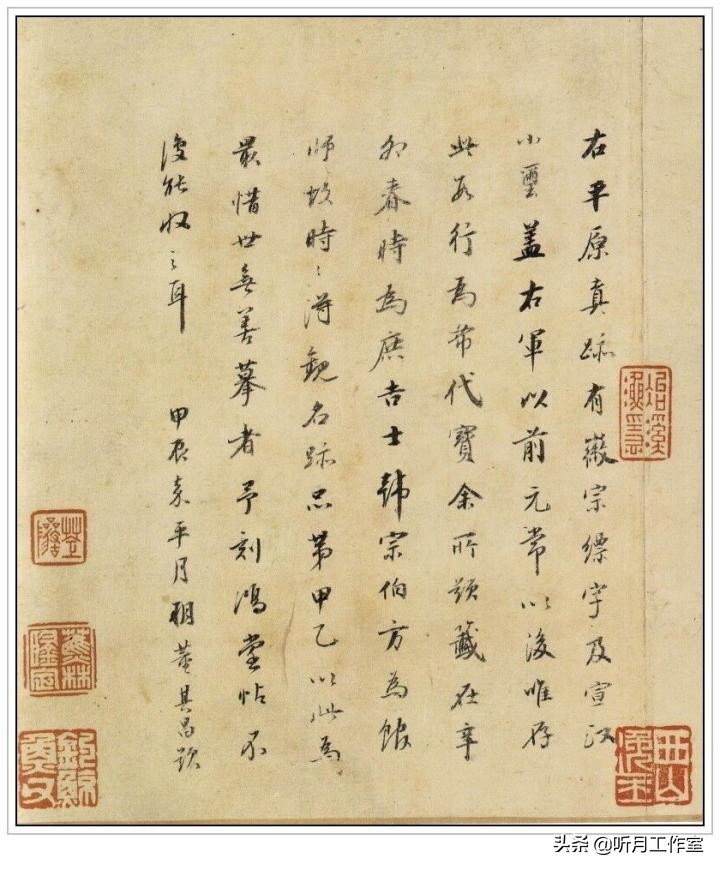 右平原真跡有徽宗縹字及宣政
小璽蓋右軍以前元常以後唯存
此數行為希代寶余所題籤在辛
卯春時為庶吉士韓宗伯方為館
師故時〻得觀名跡品第甲乙以此為
最惜世無善摹者予刻鴻堂帖不
復能收之耳 甲辰嘉平月朔董其昌題
头条 @听月工作室